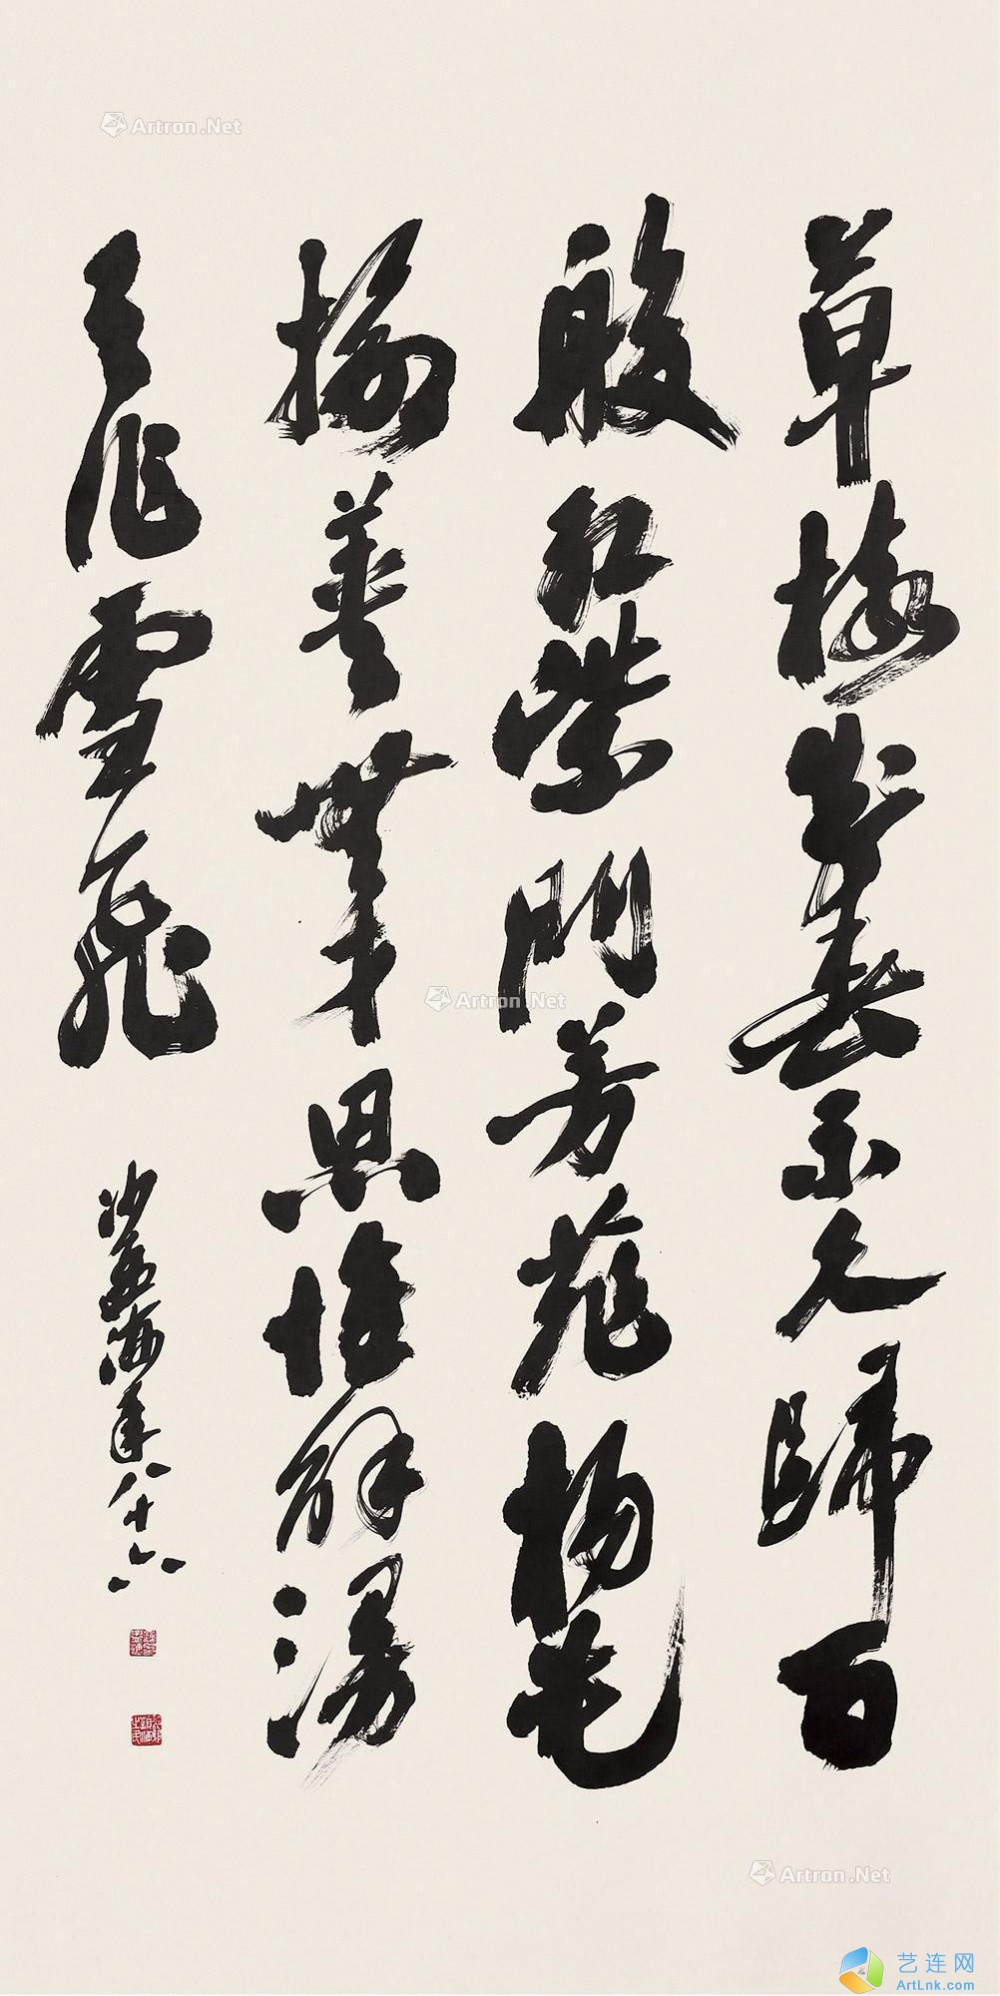 草樹知春不久歸百
般紅紫鬥芳菲楊花
榆莢無才思惟解漫
天作雪飛
沙孟海年八十六
Artron.Net
Artron.Net
Artron.Net
艺连网
ArtLnk.com